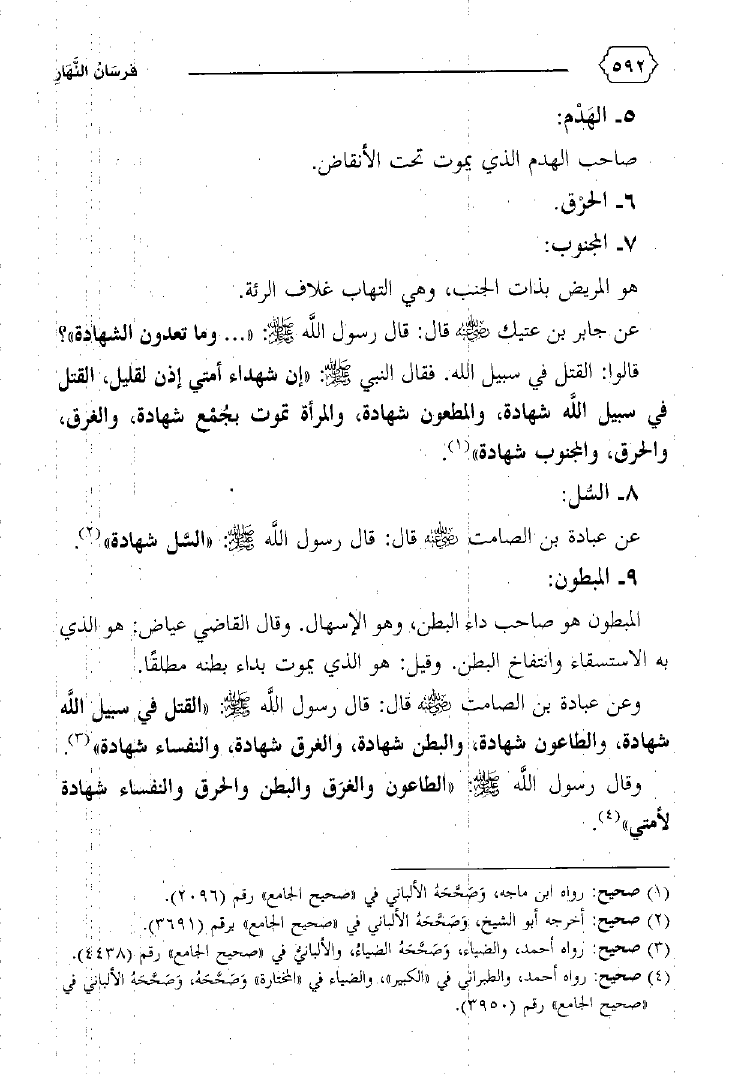 ٥٩٢
فرسَانُ النَّهَارِ
٥ـ الهَدْم:
صاحب الهدم الذي يموت تحت الأنقاض.
٦ـ الحَرْق.
٧ـ المجنوب:
هو المريض بذات الجنب، وهي التهاب غلاف الرئة.
عن جابر بن عتيك رضي الله عنه قال: قال رسول اللَّه ﷺ: «... وما تعدون الشهادة»؟
قالوا: القتل في سبيل الله. فقال النبي ﷺ: «إن شهداء أمتي إذن لقليل، القتل
في سبيل اللَّه شهادة، والمطعون شهادة، والمرأة تموت بجُمْع شهادة، والغرق،
والحرق، والمجنوب شهادة»(١).
٨ـ السُّل:
عن عبادة بن الصامت رضي الله عنه قال: قال رسول اللَّه ﷺ: «السَّل شهادة»(٢).
٩ـ المبطون:
المبطون هو صاحب داء البطن، وهو الإسهال. وقال القاضي عياض: هو الذي
به الاستسقاء وانتفاخ البطن. وقيل: هو الذي يموت بداء بطنه مطلقًا.
وعن عبادة بن الصامت رضي الله عنه قال: قال رسول اللَّه ﷺ: «القتل في سبيل اللَّه
شهادة، والطاعون شهادة، والبطن شهادة، والغرق شهادة، والنفساء شهادة»(٣).
وقال رسول اللَّه ﷺ: «الطاعون والغَرَق والبطن والحرق والنفساء شهادة
لأمتي»(٤).
(١) صحيح: رواه ابن ماجه، وَصَحَّحَهُ الألباني في «صحيح الجامع» رقم (٢٠٩٦).
(٢) صحيح: أخرجه أبو الشيخ، وَصَحَّحَهُ الألباني في «صحيح الجامع» برقم (٣٦٩١).
(٣) صحيح: رواه أحمد، والضياء، وَصَحَّحَهُ الضياءُ، والألبانيُّ في «صحيح الجامع» رقم (٤٤٣٨).
(٤) صحيح: رواه أحمد، والطبراني في «الكبير»، والضياء في «المختارة» وَصَحَّحَهُ، وَصَحَّحَهُ الألباني في
«صحيح الجامع» رقم (٣٩٥٠).